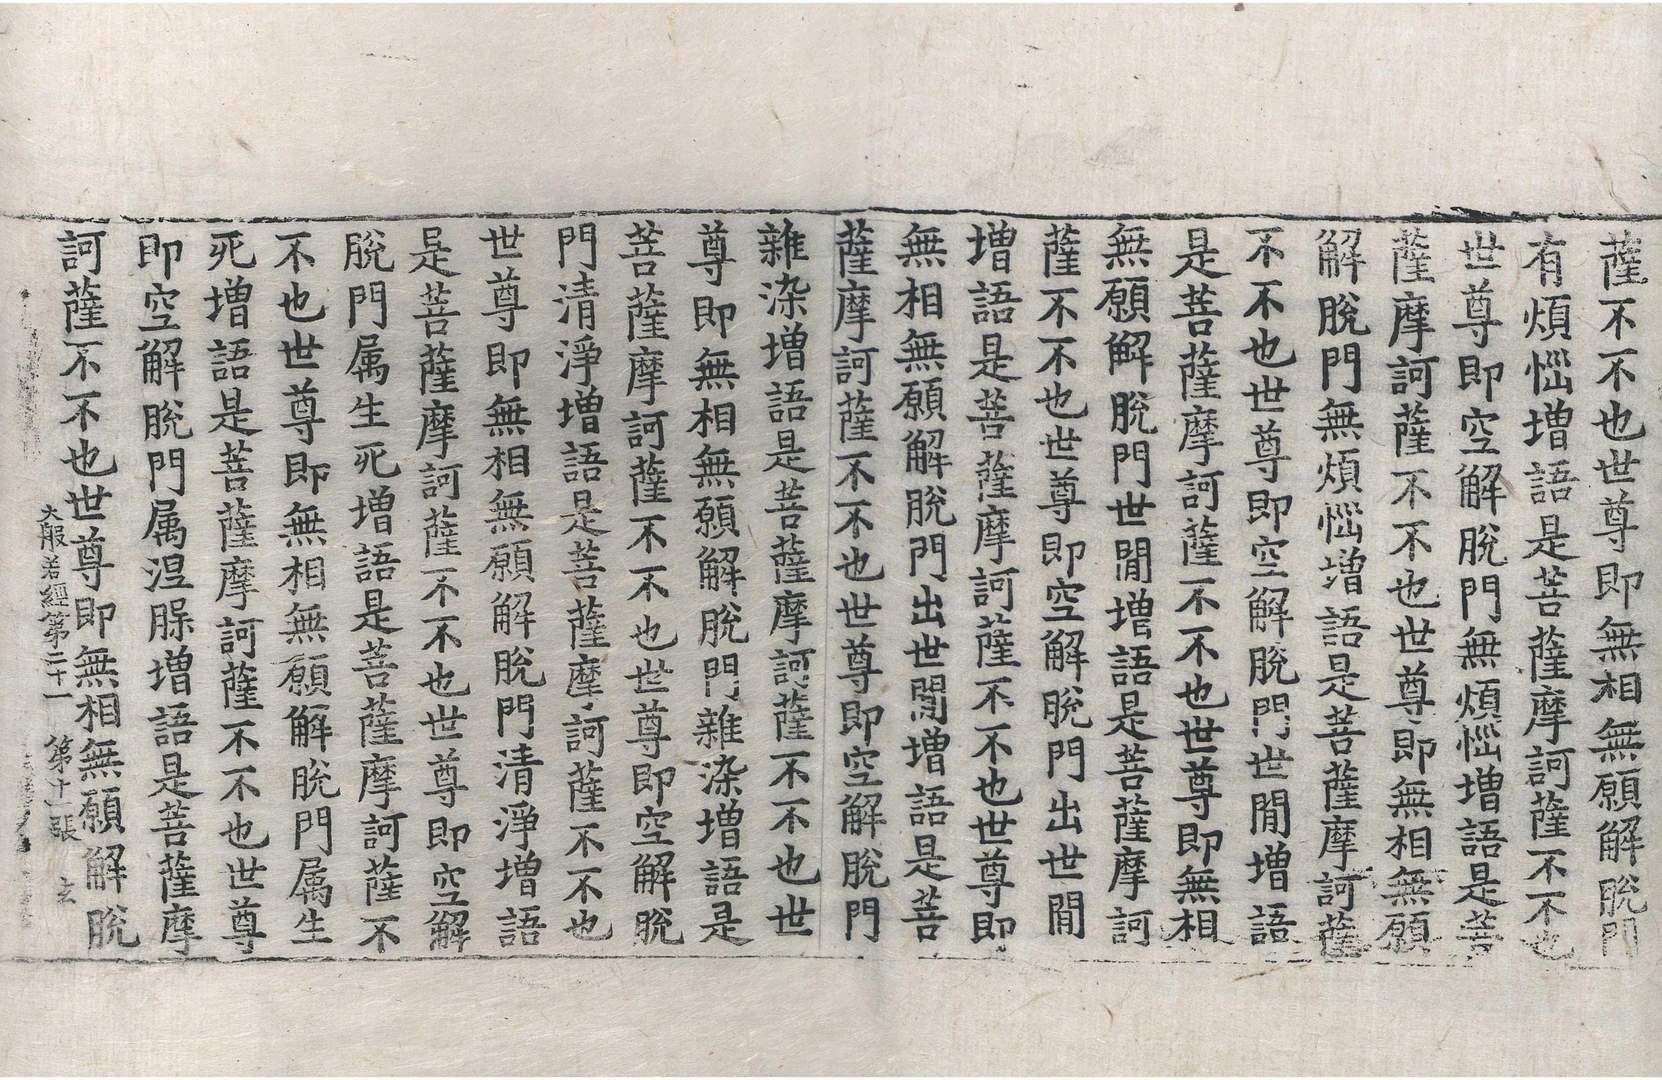 薩不不也世尊即無相無願解脫門
有煩惱增語是菩薩摩訶薩不不也
世尊即空解脫門無煩惱增語是菩
薩摩訶薩不不也世尊即無相無願
解脫門無煩惱增語是菩薩摩訶薩
不不也世尊即空解脫門世閒增語
是菩薩摩訶薩不不也世尊即無相
無願解脫門世閒增語是菩薩摩訶
薩不不也世尊即空解脫門出世閒
增語是菩薩摩訶薩不不也世尊即
無相無願解脫門出世閒增語是菩
薩摩訶薩不不也世尊即空解脫門
雜染增語是菩薩摩訶薩不不也世
尊即無相無願解脫門雜染增語是
菩薩摩訶薩不不也世尊即空解脫
門清淨增語是菩薩摩訶薩不不也
世尊即無相無願解脫門清淨增語
是菩薩摩訶薩不不也世尊即空解
脫門属生死增語是菩薩摩訶薩不
不也世尊即無相無願解脫門属生
死增語是菩薩摩訶薩不不也世尊
即空解脫門属涅槃增語是菩薩摩
訶薩不不也世尊即無相無願解脫
大般若經第二十一 第十一張 玄